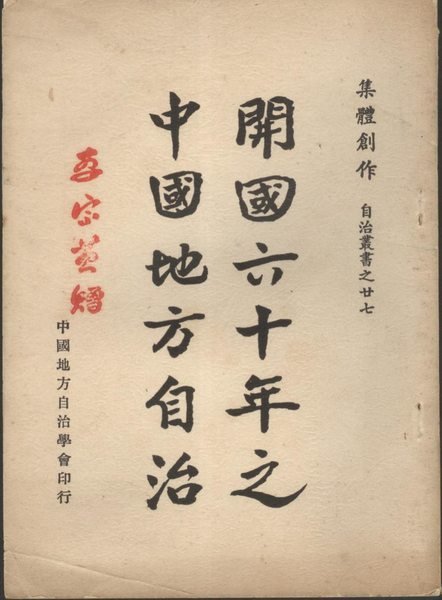 集體創作 自治叢書之廿七
開國六十年之
中國地方自治
李宗黃贈
中國地方自治學會印行